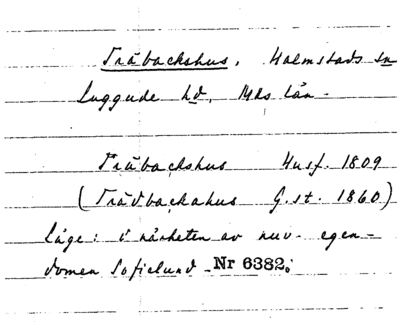 Träbackshus, Halmstads sn
Luggude hd, Mhs län.
Träbackshus Husf. 1809
(Trädbackahus G.st. 1860)
Läge: i närheten av nuv. egen-
domen Sofielund. Nr 6382.